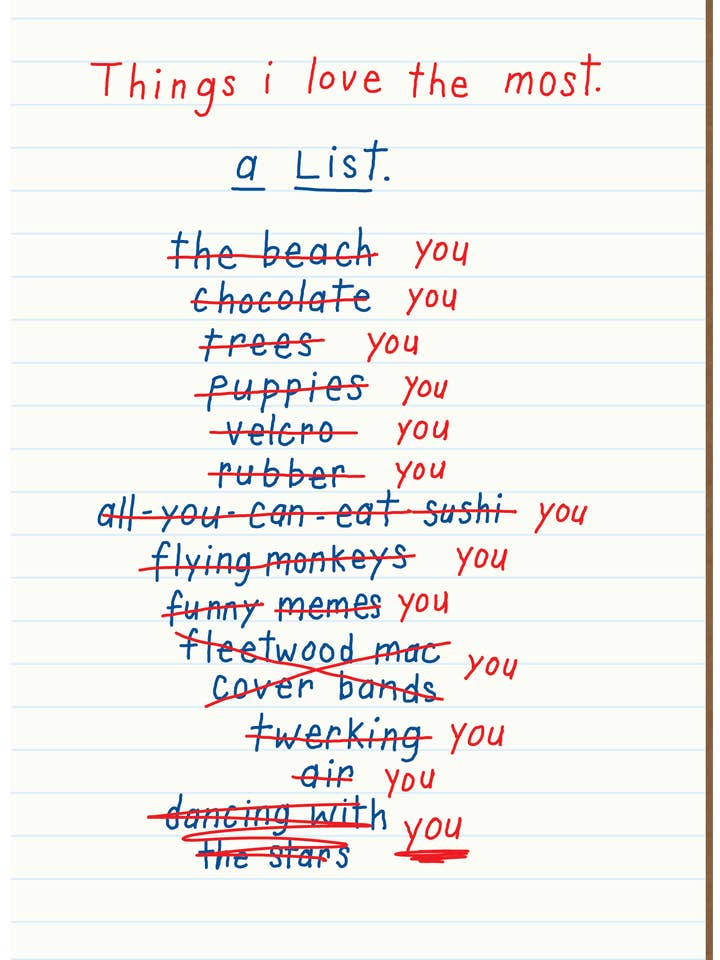 Things i love the most.
a List.
the beach you
chocolate you
trees you
puppies you
velcro you
rubber you
all-you-can-eat sushi you
flying monkeys you
funny memes you
fleetwood mac
cover bands you
twerking you
air you
dancing with
the stars you